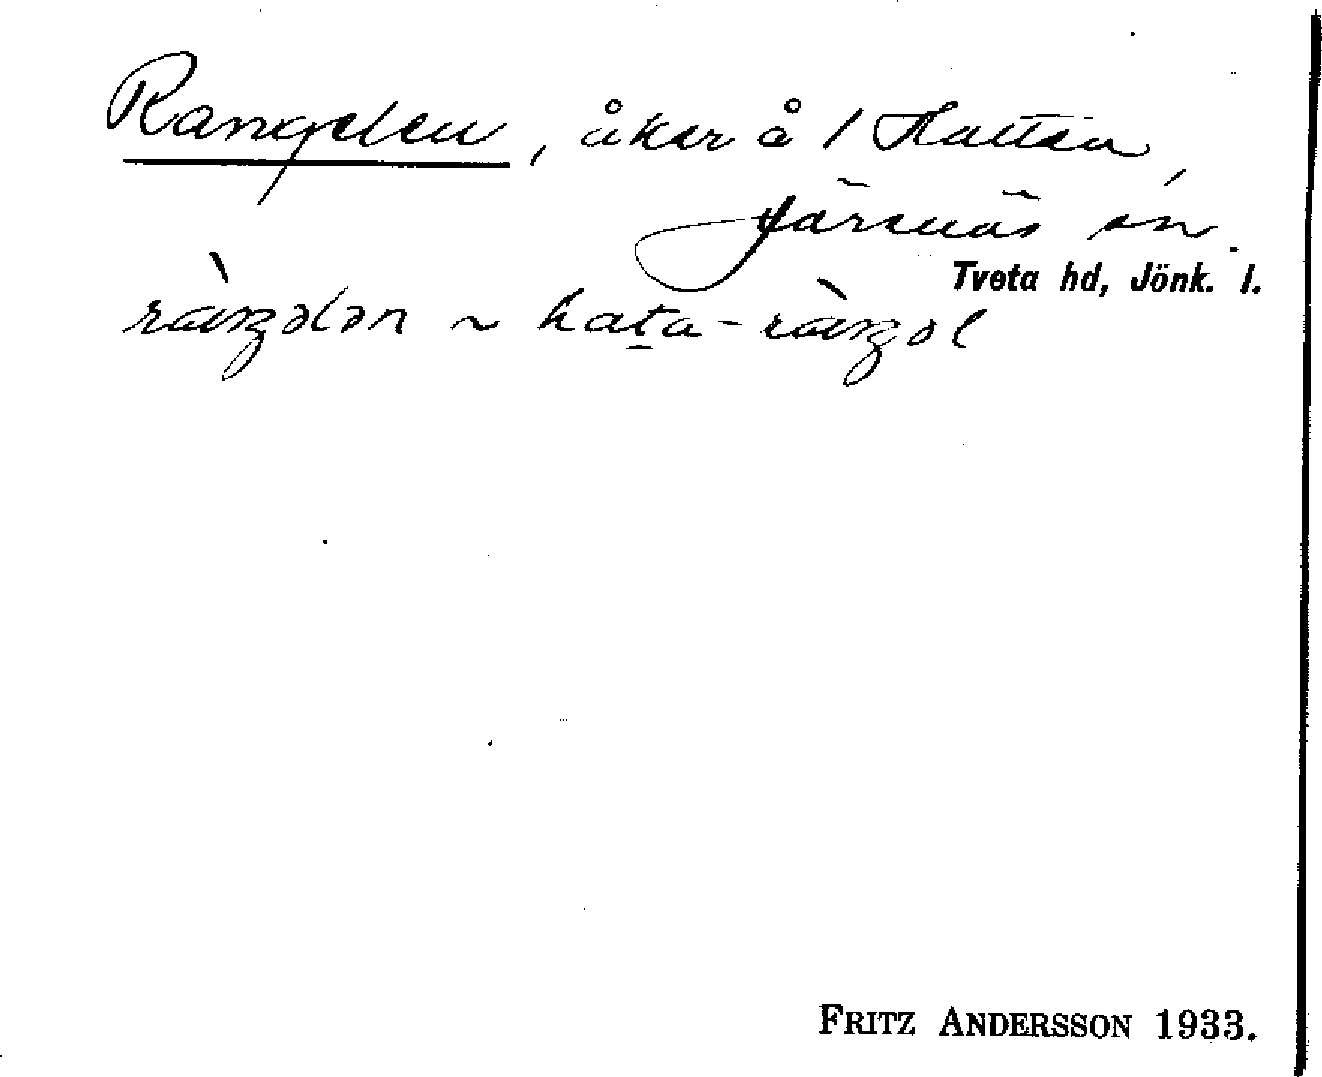 Rangelen, åker å 1 Hatten,
Järsnäs sn.
Tveta hd, Jönk. l.
ràŋələn ~ hat̲a-ràŋəl
FRITZ ANDERSSON 1933.